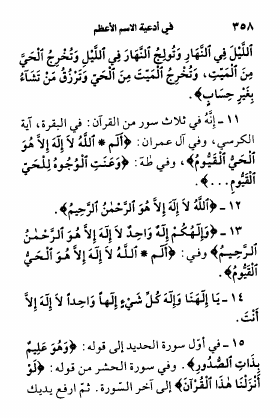 ٣٥٨ في أدعية الاسم الأعظم
اللَّيْلَ فِي النَّهَارِ وَتُولِجُ النَّهَارَ فِي اللَّيْلِ وَتُخْرِجُ الْحَيَّ
مِنَ الْمَيِّتِ، وَتُخْرِجُ الْمَيِّتَ مِنَ الْحَيِّ وَتَرْزُقُ مَنْ تَشَآءُ
بِغَيْرِ حِسَابٍ﴾.
١١ ـ إِنَّهُ في ثلاث سور من القرآن: في البقرة، آية
الكرسي، وفي آل عمران: ﴿الٓمٓ * اللَّهُ لَا إِلَهَ إِلاَّ هُوَ
الْحَيُّ الْقَيُّومُ﴾، وفي طهٰ: ﴿وَعَنَتِ الْوُجُوهُ لِلْحَيِّ
الْقَيُّومِ...﴾.
١٢ ـ ﴿اللَّهُ لَا إِلَهَ إِلاَّ هُوَ الرَّحْمٰنُ الرَّحِيمُ﴾.
١٣ ـ ﴿وَإِلَهُكُمْ إِلَهٌ وَاحِدٌ لَا إِلَهَ إِلاَّ هُوَ الرَّحْمٰنُ
الرَّحِيمُ﴾ وفي: ﴿الٓمٓ * اللَّهُ لَا إِلَهَ إِلاَّ هُوَ الْحَيُّ
الْقَيُّومُ﴾.
١٤ ـ يَا إِلَهَنَا وَإِلَهَ كُلِّ شَيْءٍ إِلَهاً وَاحِداً لَا إِلَهَ إِلاَّ
أَنْتَ.
١٥ ـ في أوّل سورة الحديد إلى قوله: ﴿وَهُوَ عَلِيمٌ
بِذَاتِ الصُّدُورِ﴾. وفي سورة الحشر من قوله: ﴿لَوْ
أَنْزَلْنَا هٰذَا الْقُرْآنَ﴾ إلى آخر السّورة. ثمّ ارفع يديك